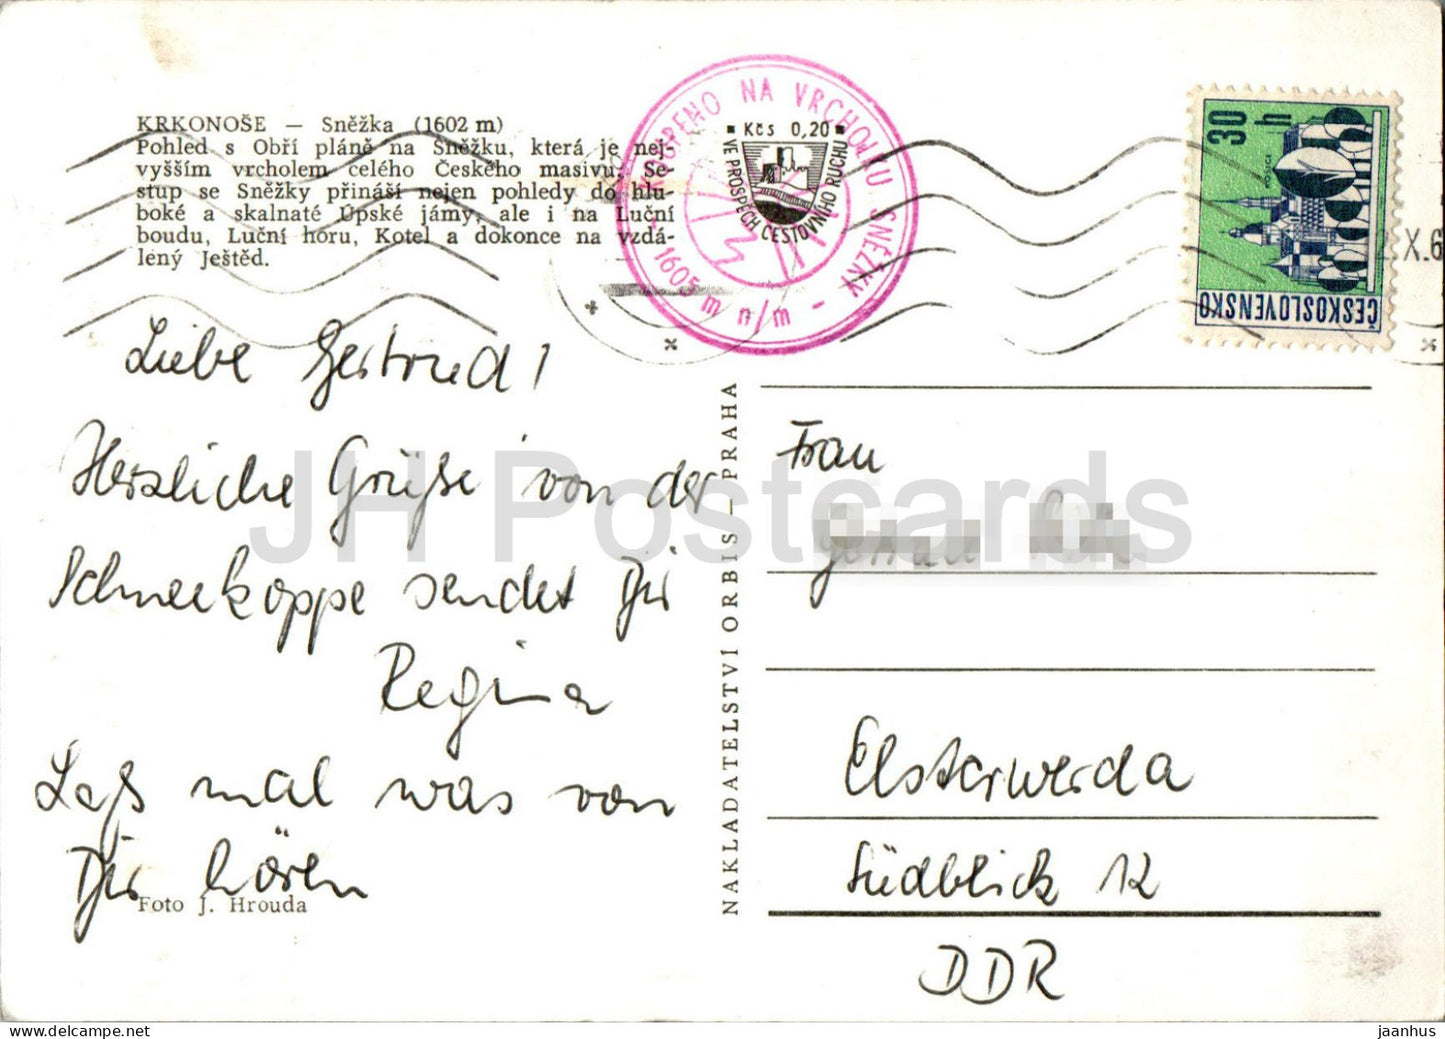 KRKONOŠE — Sněžka (1602 m)
Pohled s Obří pláně na Sněžku, která je nej-
vyšším vrcholem celého Českého masivu. Se-
stup se Sněžky přináší nejen pohledy do hlu-
boké a skalnaté Úpské jámy, ale i na Luční
boudu, Luční horu, Kotel a dokonce na vzdá-
lený Ještěd.
NA VRCHOLKU SNĚŽKY
1605 m n/m -
Kčs 0,20
VE PROSPĚCH CESTOVNÍHO RUCHU
30 h
KOŠICE
ČESKOSLOVENSKO
X.6
Liebe Gertrud!
Herzliche Grüße von der
Schneekoppe sendet Dir
Regina
Laß mal was von
Dir hören
Foto J. Hrouda
NAKLADATELSTVÍ ORBIS — PRAHA
Frau
Elsterwerda
Südblick 12
DDR
JH Postcards
jaanhus
delcampe.net